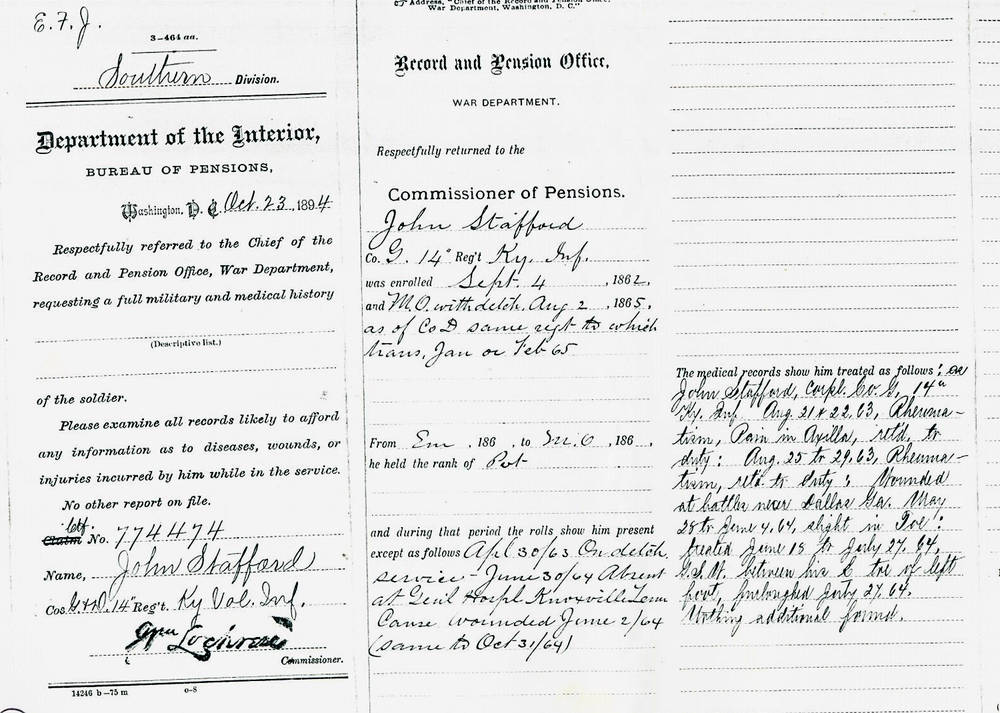 E. F. J.
3—464 aa.
Southern Division.
Department of the Interior,
BUREAU OF PENSIONS,
Washington, D. C. Oct. 23, 1894
Respectfully referred to the Chief of the
Record and Pension Office, War Department,
requesting a full military and medical history
(Descriptive list.)
of the soldier.
Please examine all records likely to afford
any information as to diseases, wounds, or
injuries incurred by him while in the service.
No other report on file.
Ctf.
Claim No. 774474
Name, John Stafford
Cos G & D. 14" Reg't. Ky Vol. Inf.
Wm Lochren
Commissioner.
14246 b—75 m o-8
Address, "Chief of the Record and Pension Office,
War Department, Washington, D. C."
Record and Pension Office,
WAR DEPARTMENT.
Respectfully returned to the
Commissioner of Pensions.
John Stafford
Co. G. 14" Reg't Ky. Inf.
was enrolled Sept. 4, 1862,
and M.O. with detch. Aug 2, 1865,
as of Co D same regt to which
trans, Jan or Feb 65
From Em, 186 , to M.O, 186 ,
he held the rank of Pvt
and during that period the rolls show him present
except as follows Apl 30/63 On detch.
service - June 30/64 Absent
at Genl Hospl Knoxville Tenn
Cause wounded June 2/64
(same to Oct 31/64)
The medical records show him treated as follows: as
John Stafford, Corpl. Co. G, 14"
Ky. Inf. Aug. 21 & 22, 63, Rheuma-
tism, Pain in Axilla, retd. to
duty: Aug. 25 to 29, 63, Rheuma-
tism, retd. to duty: Wounded
at battles near Dallas Ga. May
28 to June 4, 64, slight in Toe:
treated June 18 to July 27, 64,
G.S.W. between big & toe of left
foot, furloughed July 27, 64.
Nothing additional found.